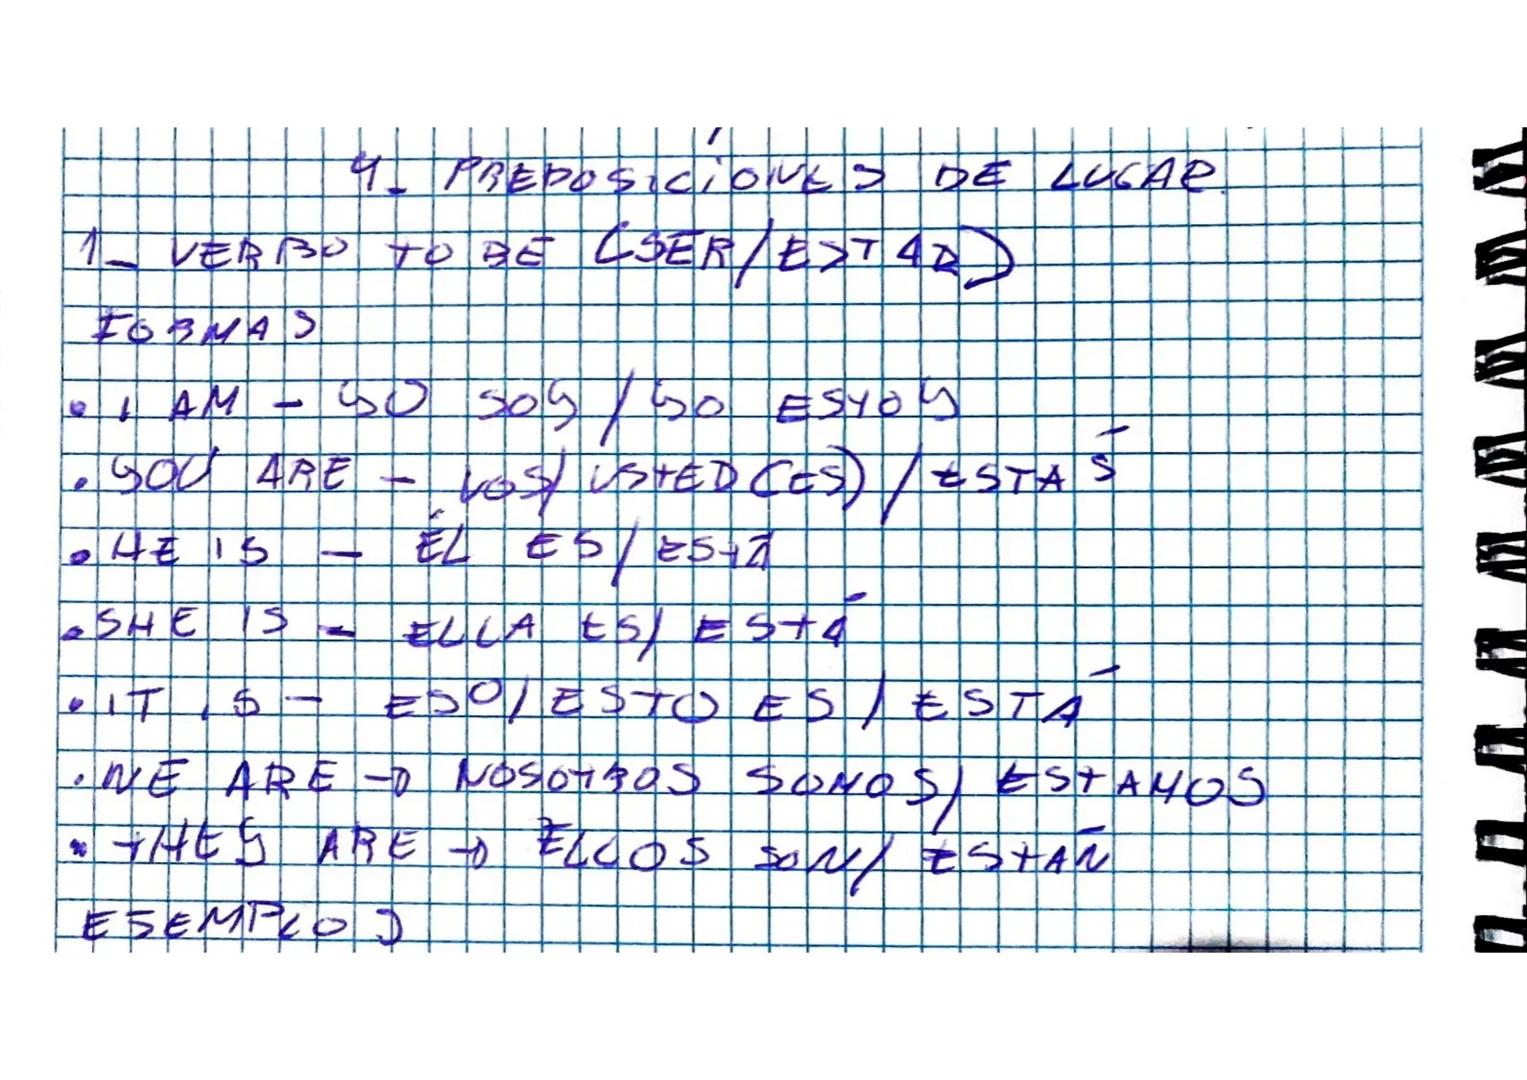 4_ PREPOSICIONES DE LUGAR
1_ VERBO TO BE (SER/ESTAR)
FORMAS
• I AM - YO SOY / YO ESTOY
• YOU ARE - VOS/ USTED(ES) / ESTÁS
• HE IS - ÉL ES/ ESTÁ
• SHE IS - ELLA ES/ ESTÁ
• IT IS - ESO/ ESTO ES / ESTÁ
• WE ARE → NOSOTROS SOMOS/ ESTAMOS
• THEY ARE → ELLOS SON/ ESTÁN
ESEMPLOS